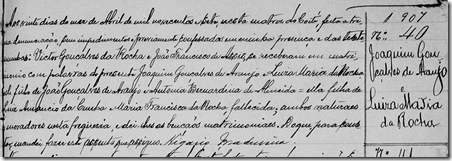 Aos vinte dias do mez de Abril de mil novecentos e sete, nesta matriz do Coité, feitas as tres
denunciações, sem impedimentos, previamente confessada em minha presença e das teste
munhas: Victor Gonçalves da Rocha e João Francisco de se receberam em matri
monio com palavras de presente Joaquim Goncalves de Araujo e Luiza Maria da Rocha
elle filho de João Goncalves de Araujo e Antonia Bernardina de Almeida = ella filha de
Amancio da Cunha e Maria Francisca da Rocha, fallecida, ambos naturaes
e moradores nesta freguesia, e dei-lhes as bençãos matrimoniaes. Do que para cons
tar, mandei fazer este assento que assigno. Vigario
1907
Nº 40
Joaquim Gon
calves de Araujo
e
Luiza Maria
da Rocha
Nº 41